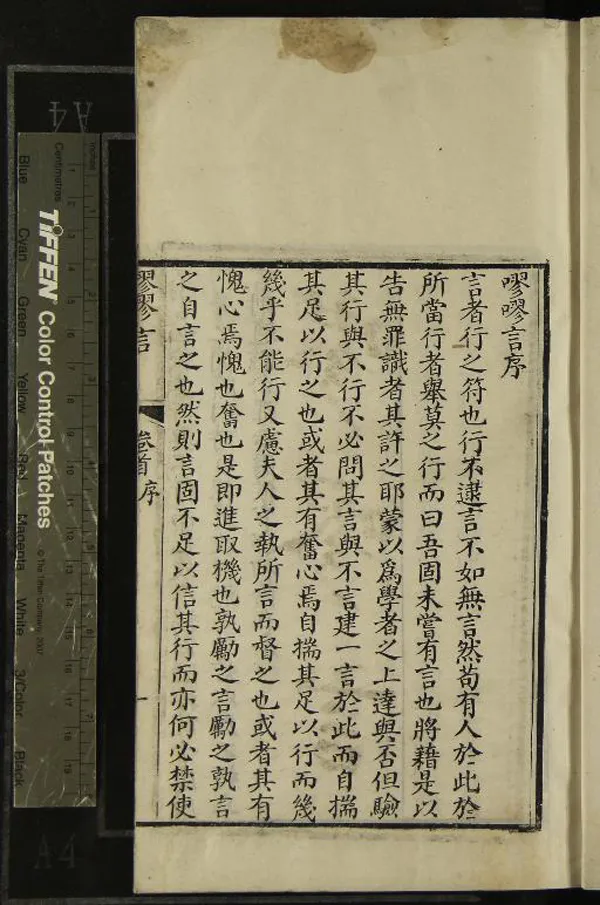 嘐嘐言序
言者行之符也行不逮言不如無言然苟有人於此於
所當行者舉莫之行而曰吾固未嘗有言也將藉是以
告無罪識者其許之耶蒙以爲學者之上達與否但驗
其行與不行不必問其言與不言建一言於此而自揣
其足以行之也或者其有奮心焉自揣其足以行而幾
幾乎不能行又慮夫人之執所言而督之也或者其有
愧心焉愧也奮也是即進取機也孰勵之言勵之孰言
之自言之也然則言固不足以信其行而亦何必禁使
嘐嘐言
卷首
序
一
A4
TIFFEN Color Control Patches
© The Tiffen Company, 2007
Centimetres
Inches
Blue
Cyan
Green
Yellow
Red
Magenta
White
3/Color
Black
A4